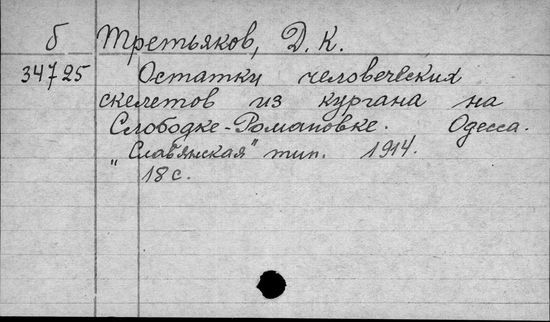 б Третьяков, Д. К.
34725 Остатки человеческих
скелетов из кургана на
Слободке-Романовке. Одесса.
„Славянская" тип. 1914.
18 с.